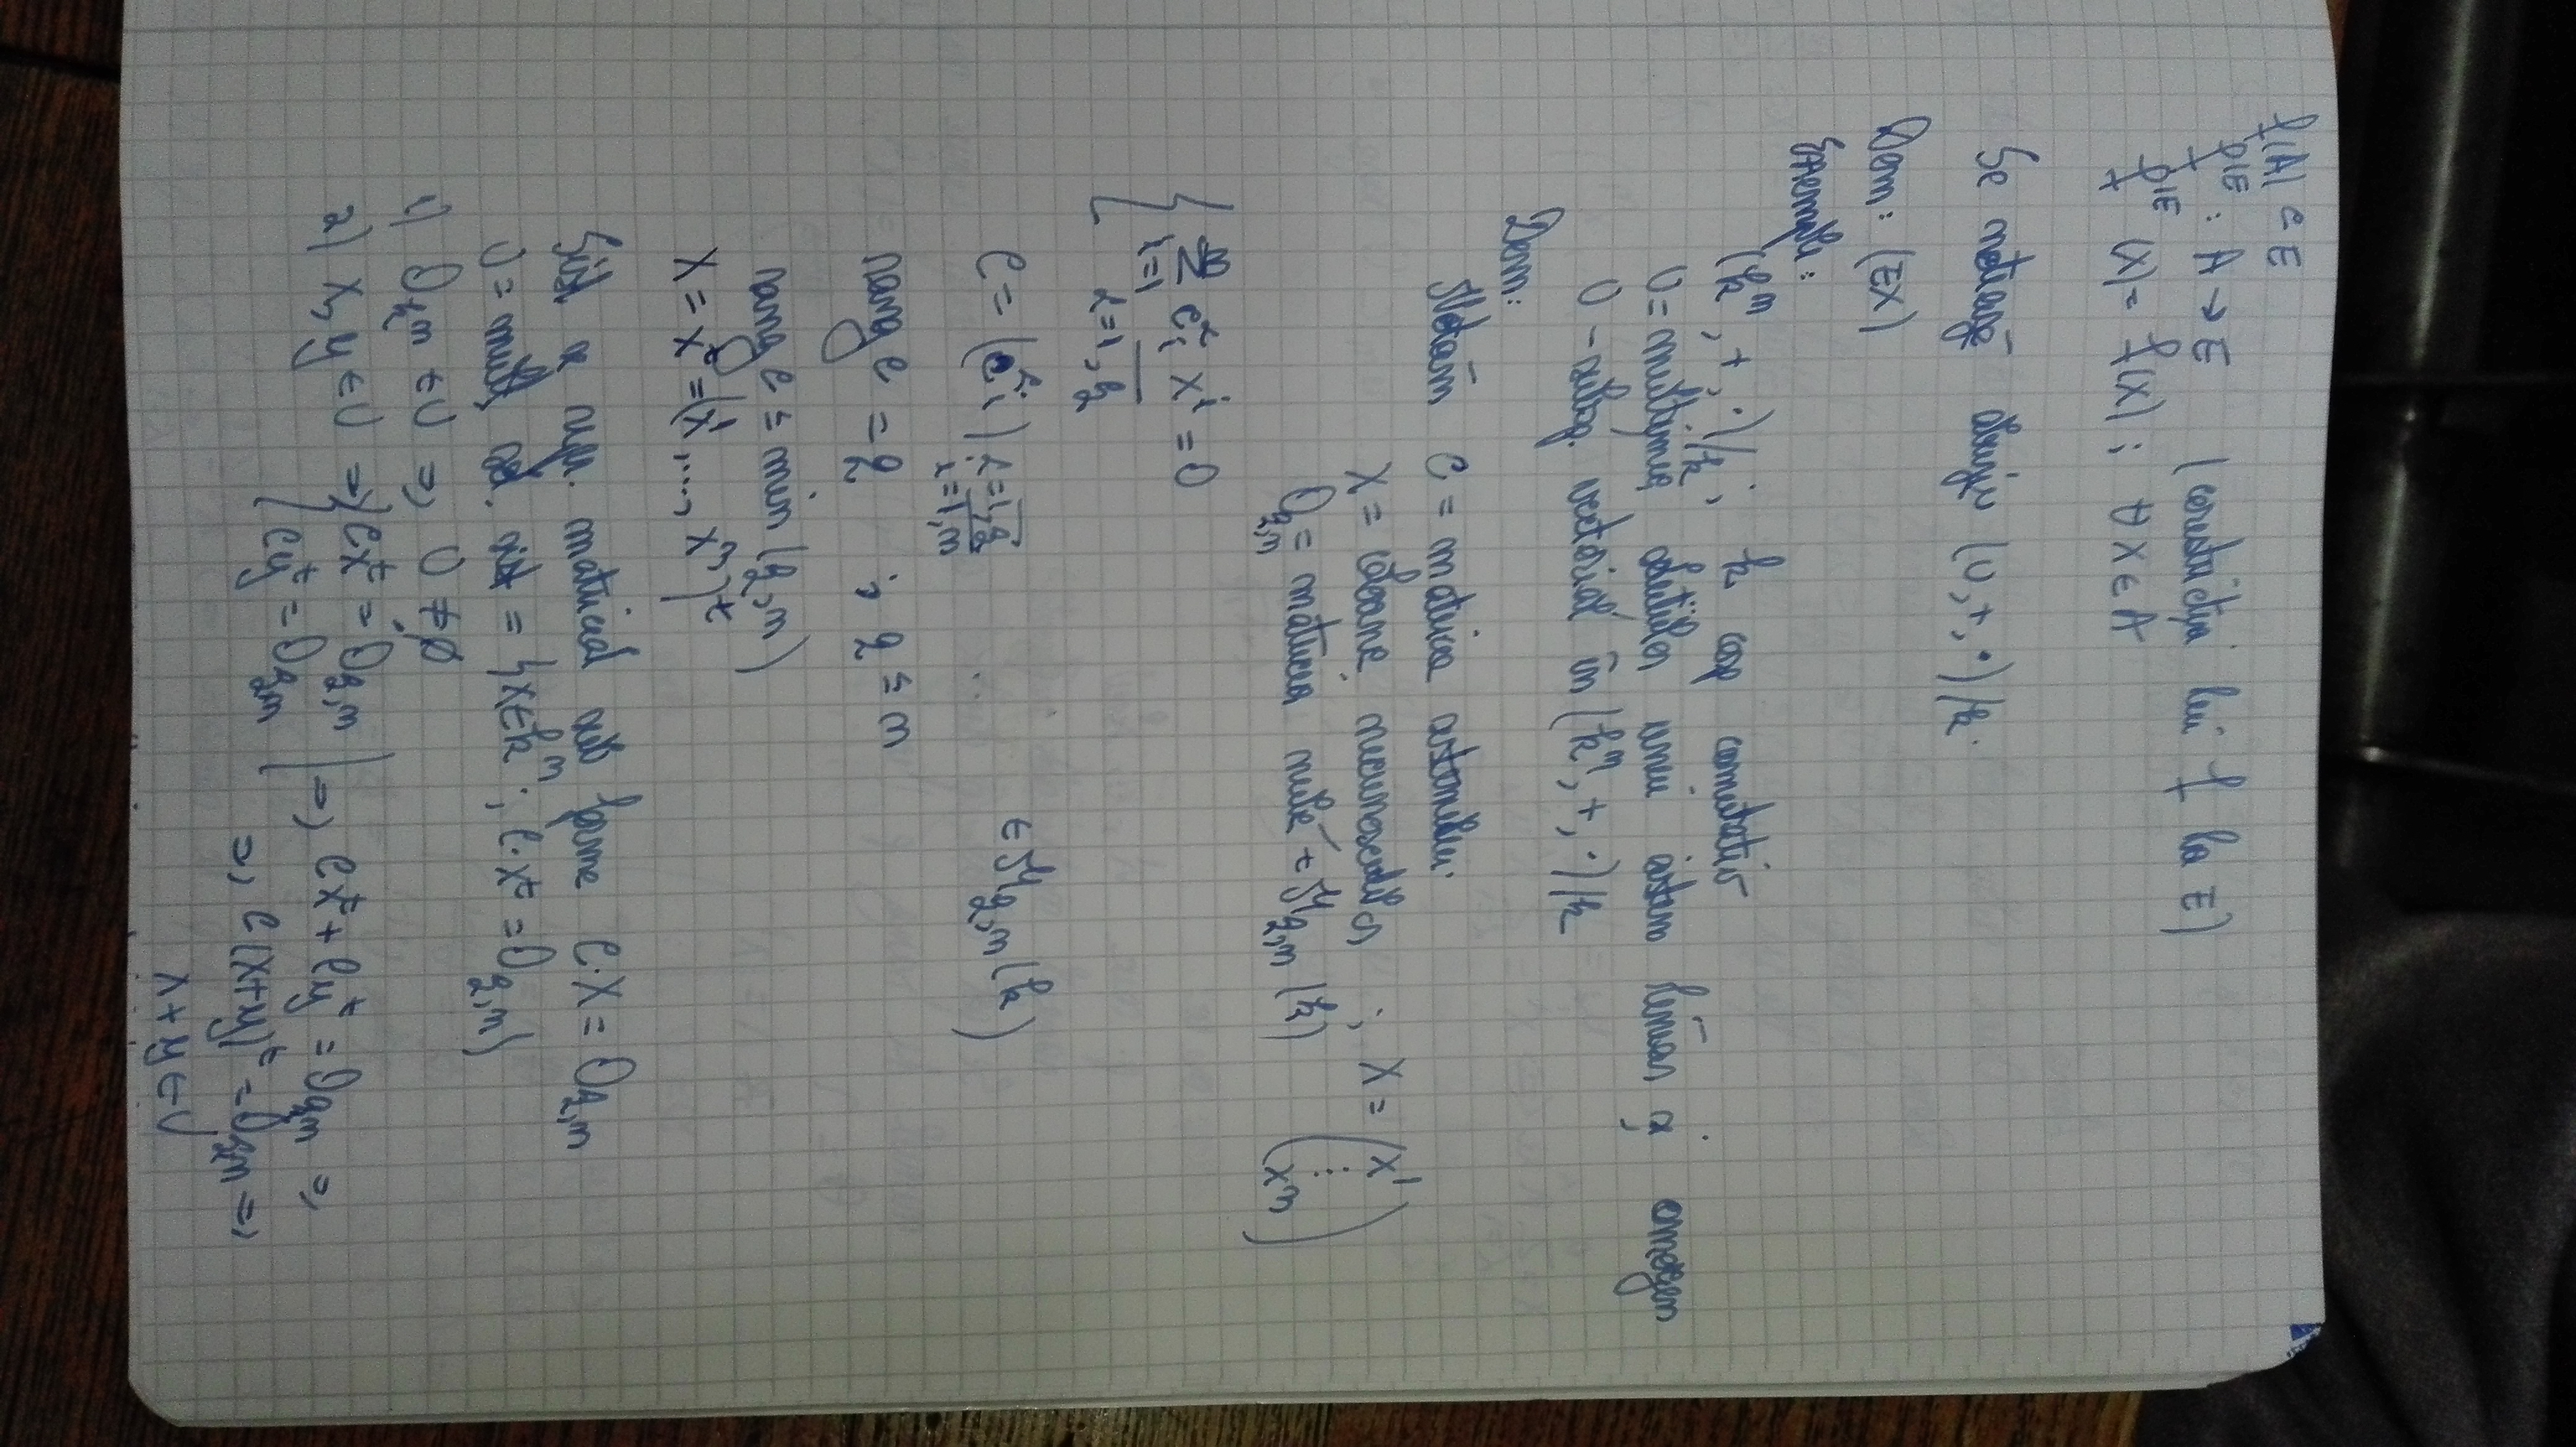 f(A) ⊂ E
f|E : A → E (corestricția lui f la E)
f|E (x) = f(x) ; ∀ x ∈ A
Se notează (U, +, ·)/k.
Dem: (EX)
Exemple:
(k^n, +, ·)/k ; k corp comutativ
U = mulțimea soluțiilor unui sistem liniar și omogen
U - subsp. vectorial în (k^n, +, ·)/k
Dem:
Notăm C = matricea sistemului
X = coloana necunoscutelor ; X = (x^1 ⋮ x^n)
O_{q,n} = matricea nulă ∈ M_{q,n} (k)
{ ∑_{i=1}^{n} c_i^α x^i = 0
α = 1,q
C = (c_i^α) α=1,q i=1,n ∈ M_{q,n} (k)
rang C = q ; q ≤ n
rang C ≤ min (q, n)
X = x^t = (x^1, ...., x^n)^t
Sist se repr. matriceal sub forma C·X = O_{q,n}
U = mulț. sol. sist = {x ∈ k^n ; C·x^t = O_{q,n}}
1) O_{k^n} ∈ U ⇒ U ≠ ∅
2) x, y ∈ U ⇒ { Cx^t = O_{q,n}
{ Cy^t = O_{q,n} | ⇒ Cx^t + Cy^t = O_{q,n} ⇒
⇒ C(x+y)^t = O_{q,n} ⇒
x + y ∈ U